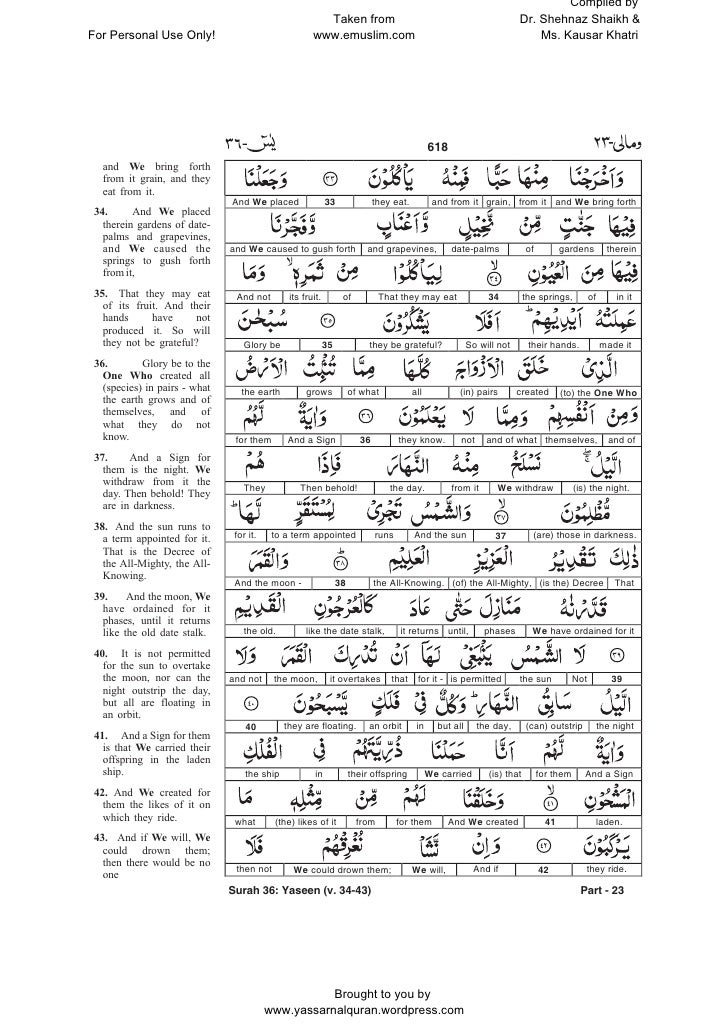 Compiled by
Taken from Dr. Shehnaz Shaikh &
For Personal Use Only! www.emuslim.com Ms. Kausar Khatri
يٰسٓ-٣٦ 618 ومالی-٢٣
and We bring forth
from it grain, and they
eat from it.
34. And We placed
therein gardens of date-
palms and grapevines,
and We caused the
springs to gush forth
from it,
35. That they may eat
of its fruit. And their
hands have not
produced it. So will
they not be grateful?
36. Glory be to the
One Who created all
(species) in pairs - what
the earth grows and of
themselves, and of
what they do not
know.
37. And a Sign for
them is the night. We
withdraw from it the
day. Then behold! They
are in darkness.
38. And the sun runs to
a term appointed for it.
That is the Decree of
the All-Mighty, the All-
Knowing.
39. And the moon, We
have ordained for it
phases, until it returns
like the old date stalk.
40. It is not permitted
for the sun to overtake
the moon, nor can the
night outstrip the day,
but all are floating in
an orbit.
41. And a Sign for them
is that We carried their
offspring in the laden
ship.
42. And We created for
them the likes of it on
which they ride.
43. And if We will, We
could drown them;
then there would be no
one
وَاَخْرَجْنَا مِنْهَا حَبًّا فَمِنْهُ يَاْكُلُوْنَ ٣٣ وَجَعَلْنَا
And We placed 33 they eat. and from it grain, from it and We bring forth
فِيْهَا جَنّٰتٍ مِّنْ نَّخِيْلٍ وَّاَعْنَابٍ وَّفَجَّرْنَا
and We caused to gush forth and grapevines, date-palms of gardens therein
فِيْهَا مِنَ الْعُيُوْنِ ۙ٣٤ لِيَاْكُلُوْا مِنْ ثَمَرِهٖ ۙ وَمَا
And not its fruit. of That they may eat 34 the springs, of in it
عَمِلَتْهُ اَيْدِيْهِمْ ؕ اَفَلَا يَشْكُرُوْنَ ٣٥ سُبْحٰنَ
Glory be 35 they be grateful? So will not their hands. made it
الَّذِيْ خَلَقَ الْاَزْوَاجَ كُلَّهَا مِمَّا تُنْۢبِتُ الْاَرْضُ
the earth grows of what all (in) pairs created (to) the One Who
وَمِنْ اَنْفُسِهِمْ وَمِمَّا لَا يَعْلَمُوْنَ ٣٦ وَاٰيَةٌ لَّهُمُ
for them And a Sign 36 they know. not and of what themselves, and of
الَّيْلُ ۖۚ نَسْلَخُ مِنْهُ النَّهَارَ فَاِذَا هُمْ
They Then behold! the day. from it We withdraw (is) the night.
مُّظْلِمُوْنَ ۙ٣٧ وَالشَّمْسُ تَجْرِيْ لِمُسْتَقَرٍّ لَّهَا ؕ
for it. to a term appointed runs And the sun 37 (are) those in darkness.
ذٰلِكَ تَقْدِيْرُ الْعَزِيْزِ الْعَلِيْمِ ؕ٣٨ وَالْقَمَرَ
And the moon - 38 the All-Knowing. (of) the All-Mighty, (is the) Decree That
قَدَّرْنٰهُ مَنَازِلَ حَتّٰى عَادَ كَالْعُرْجُوْنِ الْقَدِيْمِ
the old. like the date stalk, it returns until, phases We have ordained for it
٣٩ لَا الشَّمْسُ يَنْۢبَغِيْ لَهَاۤ اَنْ تُدْرِكَ الْقَمَرَ وَلَا
and not the moon, it overtakes that for it - is permitted the sun Not 39
الَّيْلُ سَابِقُ النَّهَارِ ؕ وَكُلٌّ فِيْ فَلَكٍ يَّسْبَحُوْنَ ٤٠
40 they are floating. an orbit in but all the day, (can) outstrip the night
وَاٰيَةٌ لَّهُمْ اَنَّا حَمَلْنَا ذُرِّيَّتَهُمْ فِي الْفُلْكِ
the ship in their offspring We carried (is) that for them And a Sign
الْمَشْحُوْنِ ۙ٤١ وَخَلَقْنَا لَهُمْ مِّنْ مِّثْلِهٖ مَا
what (the) likes of it from for them And We created 41 laden.
يَرْكَبُوْنَ ٤٢ وَاِنْ نَّشَاْ نُغْرِقْهُمْ فَلَا
then not We could drown them; We will, And if 42 they ride.
Surah 36: Yaseen (v. 34-43) Part - 23
Brought to you by
www.yassarnalquran.wordpress.com